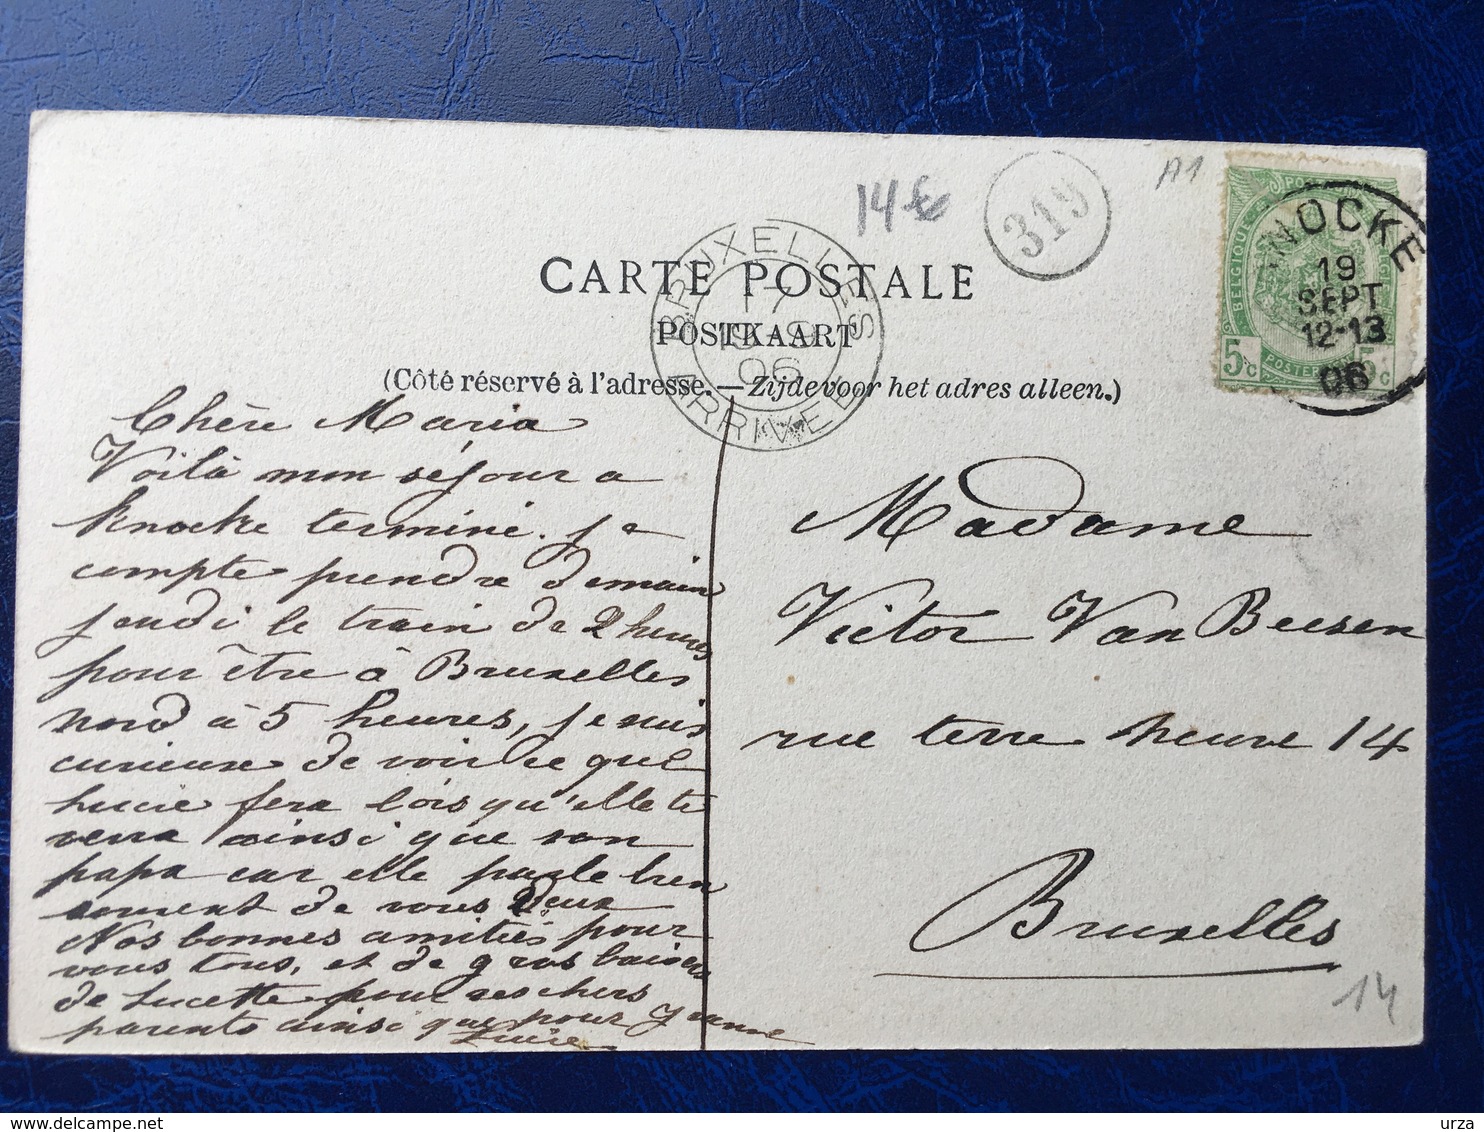 14
319
A1
CARTE POSTALE
POSTKAART
(Côté réservé à l'adresse. — Zijde voor het adres alleen.)
BRUXELLES
17
06
ARRIVEE
BELGIQUE
5c
5c
KNOCKE
19
SEPT
12-13
06
Chère Maria
Voilà mon séjour a
Knocke terminé. je
compte prendre demain
jeudi le train de 2 heures
pour être à Bruxelles
Nord à 5 heures, je suis
curieuse de voir ce que
Lucie fera lors qu'elle te
verra ainsi que son
papa car elle parle bien
souvent de vous deux
Nos bonnes amitiés pour
vous tous, et de gros baisers
de Lucette pour ses chers
parents ainsi que pour Jeanne
Lucie
Madame
Victor Van Beesen
rue terre neuve 14
Bruxelles
14
urza